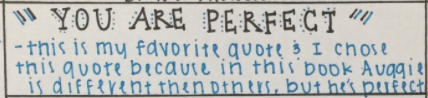 " YOU ARE PERFECT "
-this is my favorite quote & I chose
this quote because in this book Auggie
is different then others, but he's perfect